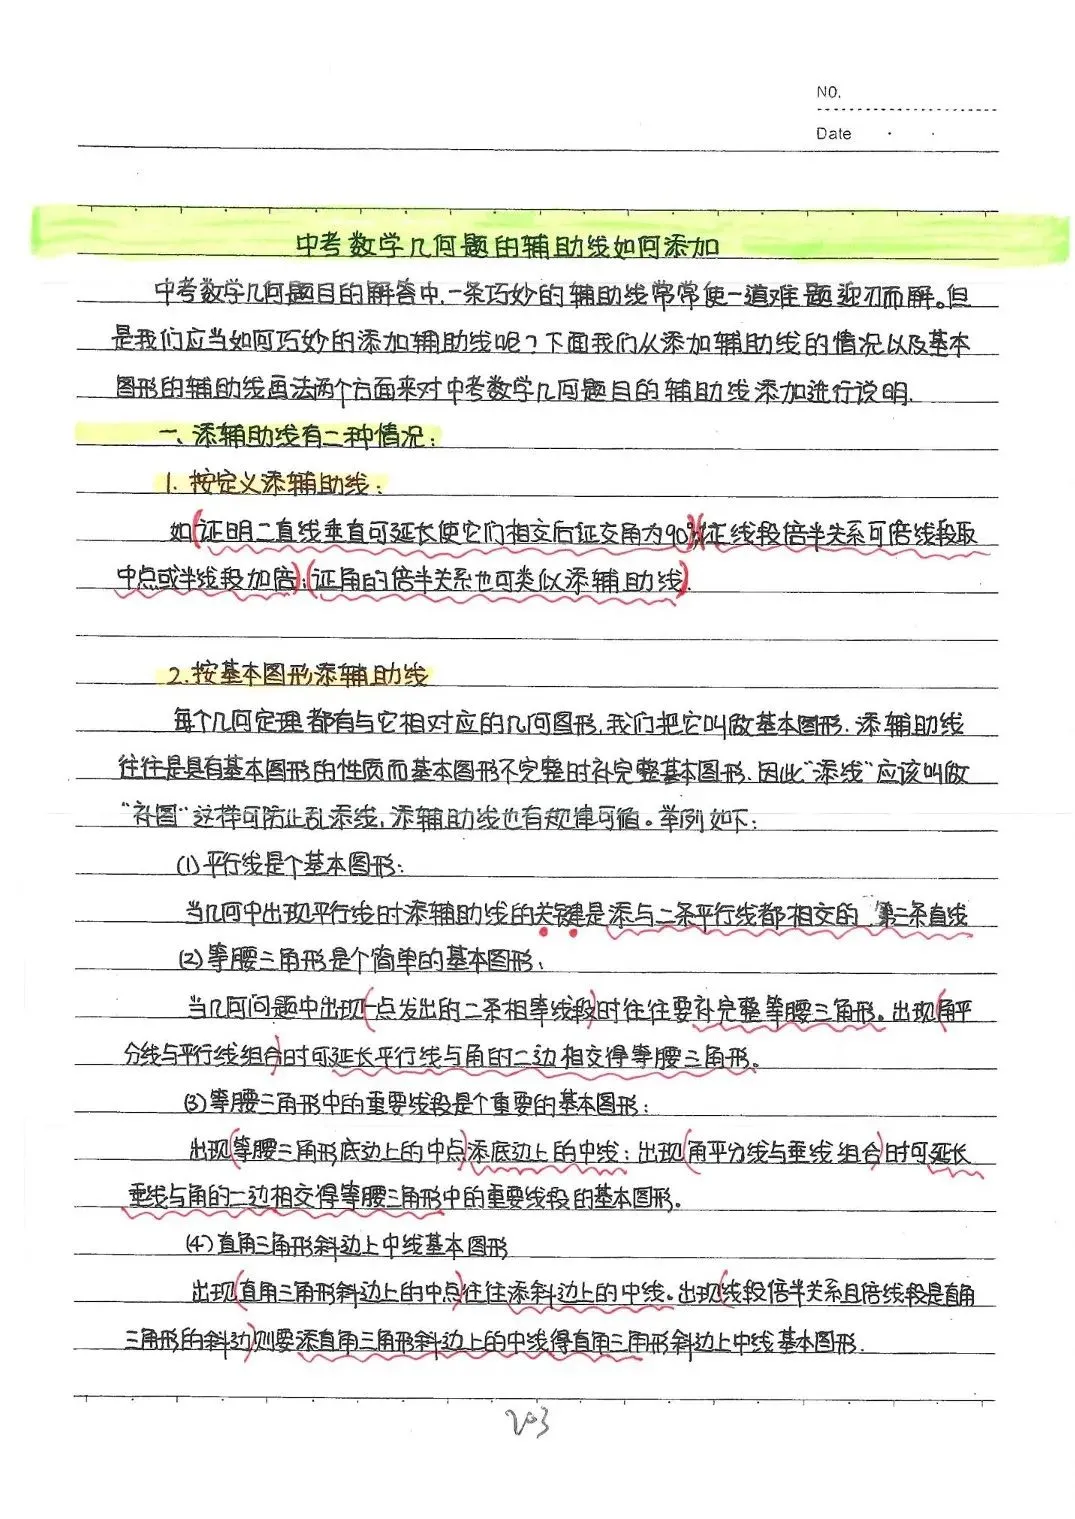 NO.
Date
中考数学几何题的辅助线如何添加
中考数学几何题目的解答中,一条巧妙的辅助线常常使一道难题迎刃而解。但
是我们应当如何巧妙的添加辅助线呢?下面我们从添加辅助线的情况以及基本
图形的辅助线画法两个方面来对中考数学几何题目的辅助线添加进行说明.
一、添辅助线有二种情况:
1.按定义添辅助线:
如(证明二直线垂直可延长使它们相交后证交角为90°)(证线段倍半关系可倍线段取
中点或半线段加倍);(证角的倍半关系也可类似添辅助线).
2.按基本图形添辅助线
每个几何定理都有与它相对应的几何图形,我们把它叫做基本图形.添辅助线
往往是具有基本图形的性质而基本图形不完整时补完整基本图形.因此“添线”应该叫做
“补图”这样可防止乱添线,添辅助线也有规律可循。举例如下:
(1)平行线是个基本图形:
当几何中出现平行线时添辅助线的关键是添与二条平行线都相交的 第三条直线
(2)等腰三角形是个简单的基本图形:
当几何问题中出现(一点发出的二条相等线段)时往往要补完整等腰三角形。出现(角平
分线与平行线组合)时可延长平行线与角的二边相交得等腰三角形。
(3)等腰三角形中的重要线段是个重要的基本图形:
出现(等腰三角形底边上的中点)添底边上的中线;出现(角平分线与垂线组合)时可延长
垂线与角的二边相交得等腰三角形中的重要线段的基本图形。
(4)直角三角形斜边上中线基本图形
出现(直角三角形斜边上的中点)往往添斜边上的中线。出现(线段倍半关系且倍线段是直角
三角形的斜边)则要添直角三角形斜边上的中线得直角三角形斜边上中线基本图形.
203